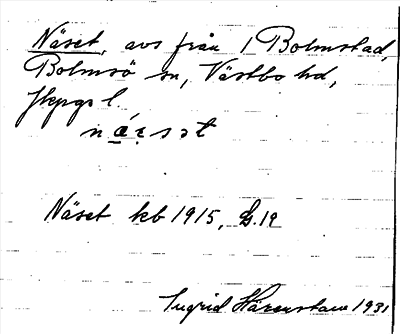 Näset, avs från 1 Bolmstad,
Bolmsö sn, Västbo hd,
Jkpgs l.
Näset kb 1915, G. 19
Ingrid 1931